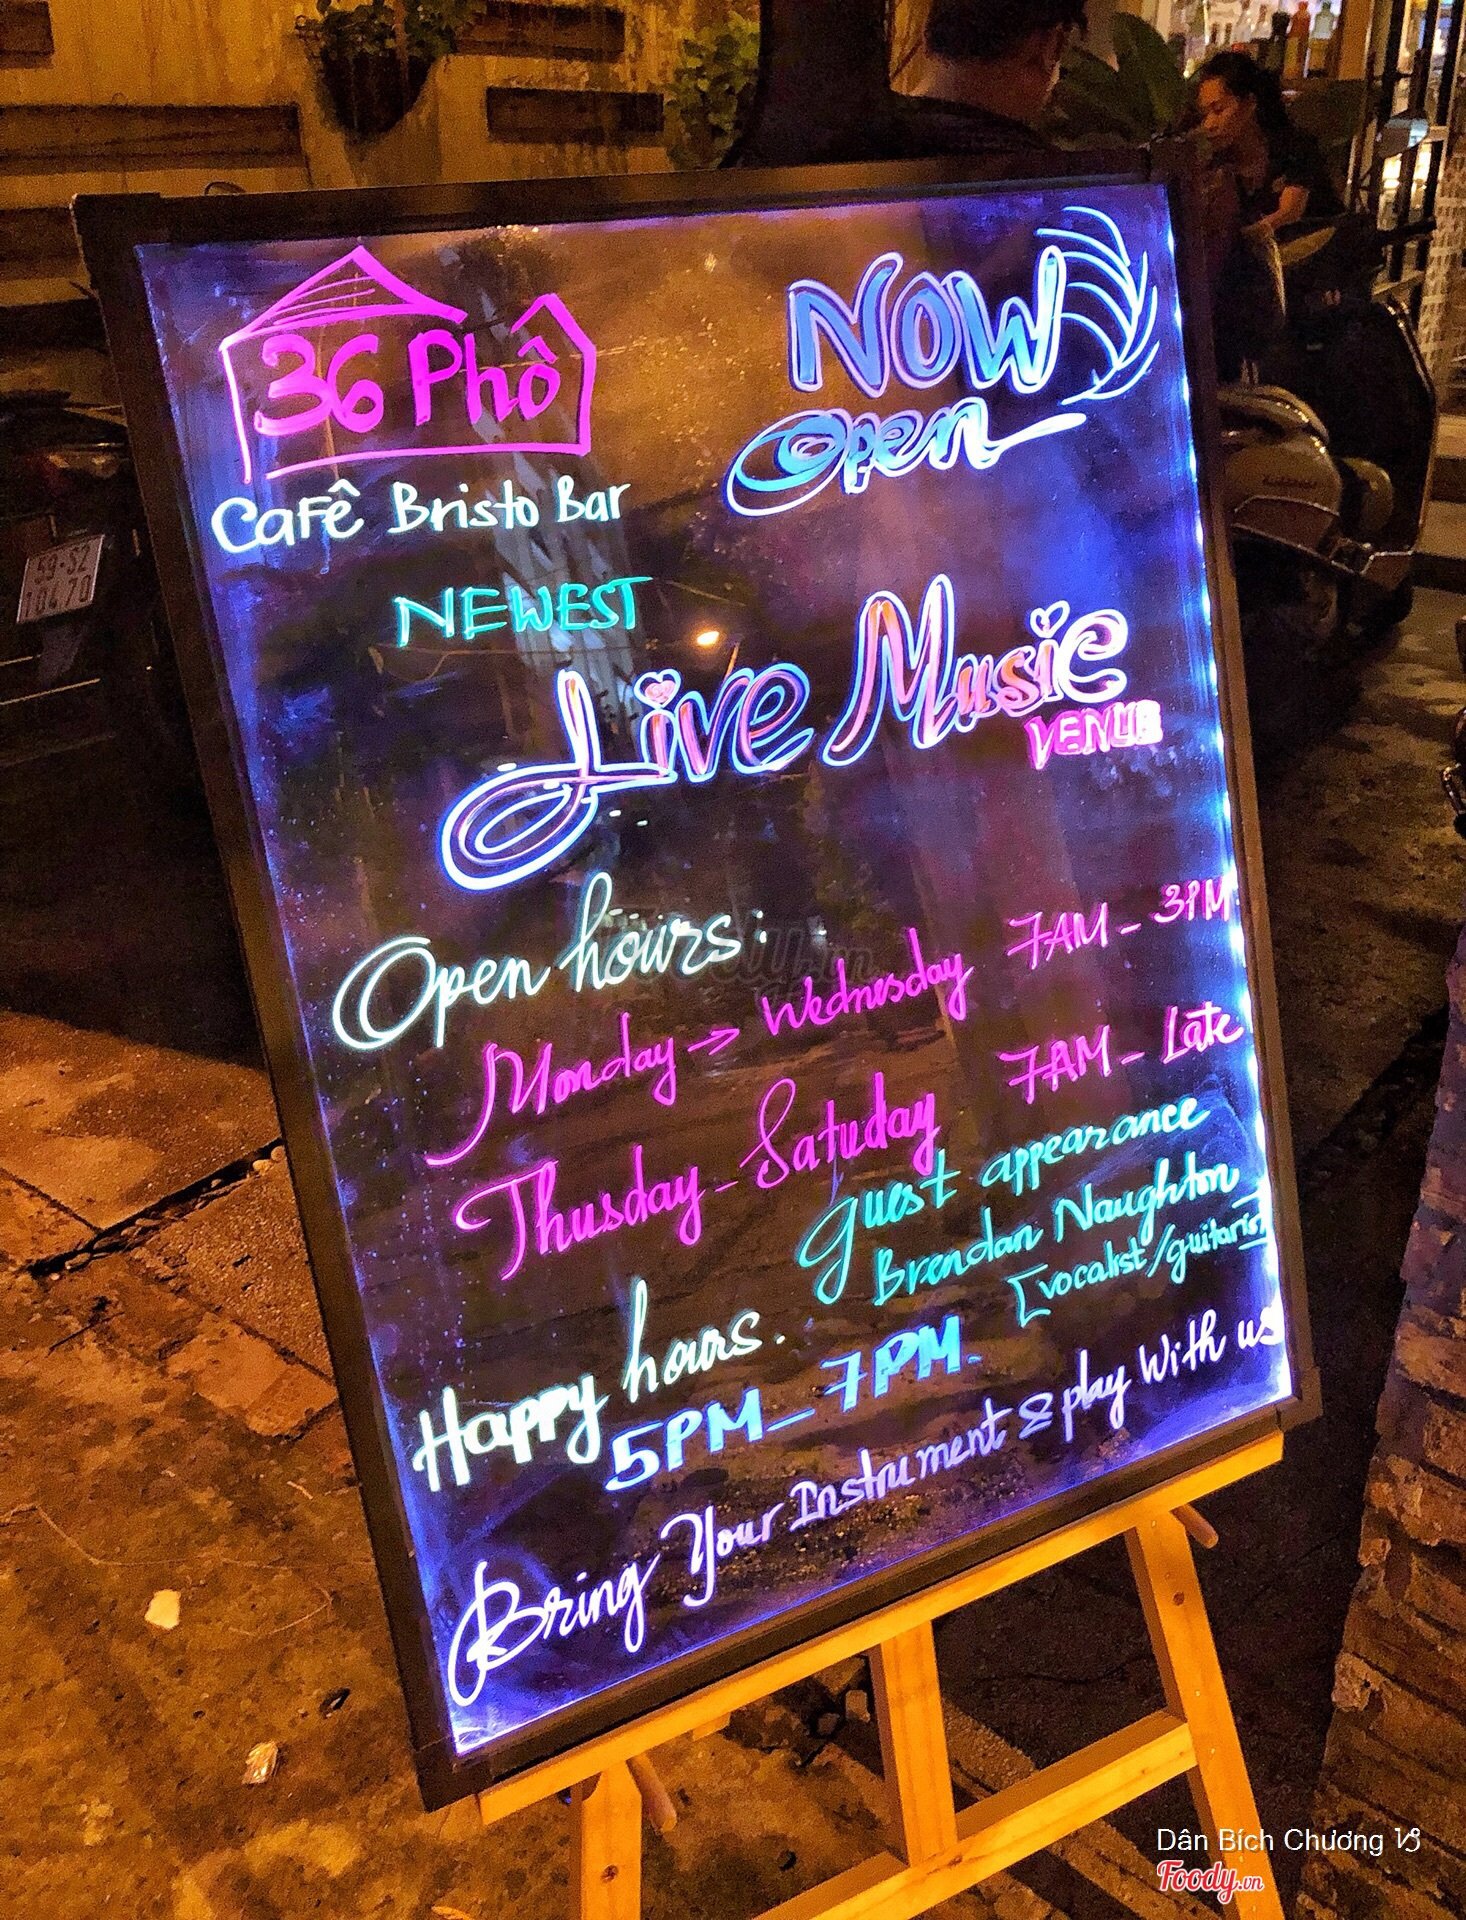 36 Phô
Cafê Bristo Bar
NOW
Open
NEWEST
Live Music
VENUE
Open hours:
Monday → Wednesday 7AM - 3PM
Thusday - Satuday 7AM - Late
guest appearance
Brendan Naughton
[vocalist/guitarist]
Happy hours.
5PM - 7PM.
Bring Your Instrument & play With us
59-S2
104.70
Dân Bích Chương
Foody.vn